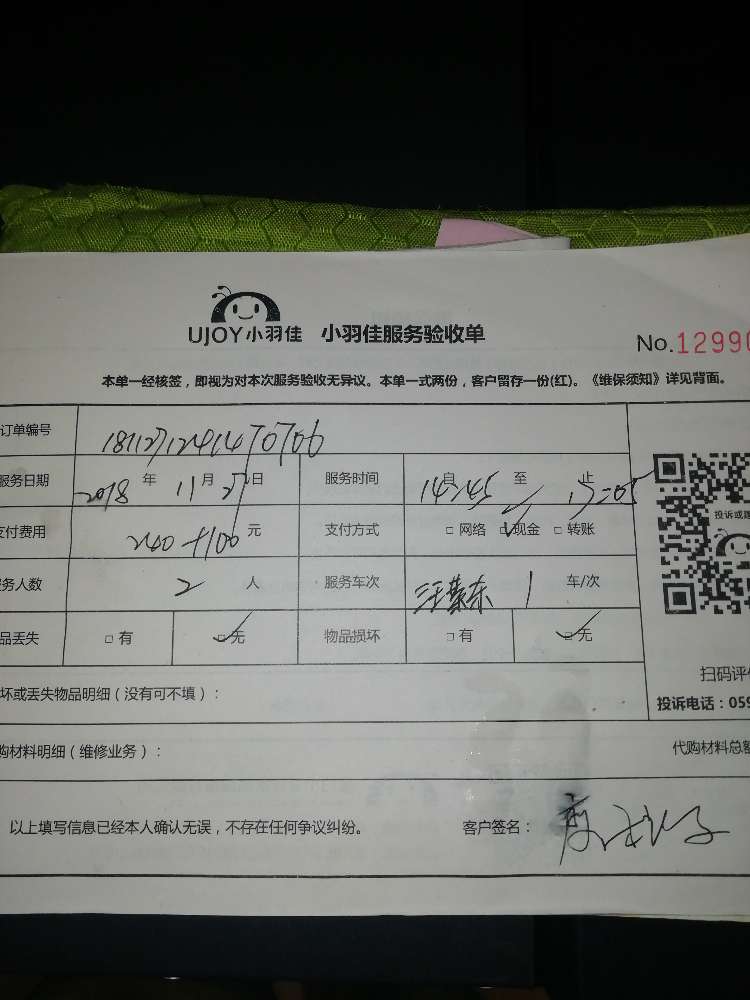 UJOY小羽佳 小羽佳服务验收单
No.12990
本单一经核签，即视为对本次服务验收无异议。本单一式两份，客户留存一份(红)。《维保须知》详见背面。
订单编号
服务日期 2018 年 11 月 27 日 服务时间 自 14:45 至 止
支付费用 240+100 元 支付方式 □ 网络 □ 现金 □ 转账
务人数 2 人 服务车次 1 车/次
品丢失 □ 有 □ 无 物品损坏 □ 有 □ 无
坏或丢失物品明细（没有可不填）：
购材料明细（维修业务）：
代购材料总额
以上填写信息已经本人确认无误，不存在任何争议纠纷。 客户签名：
投诉或
扫码评价
投诉电话：059